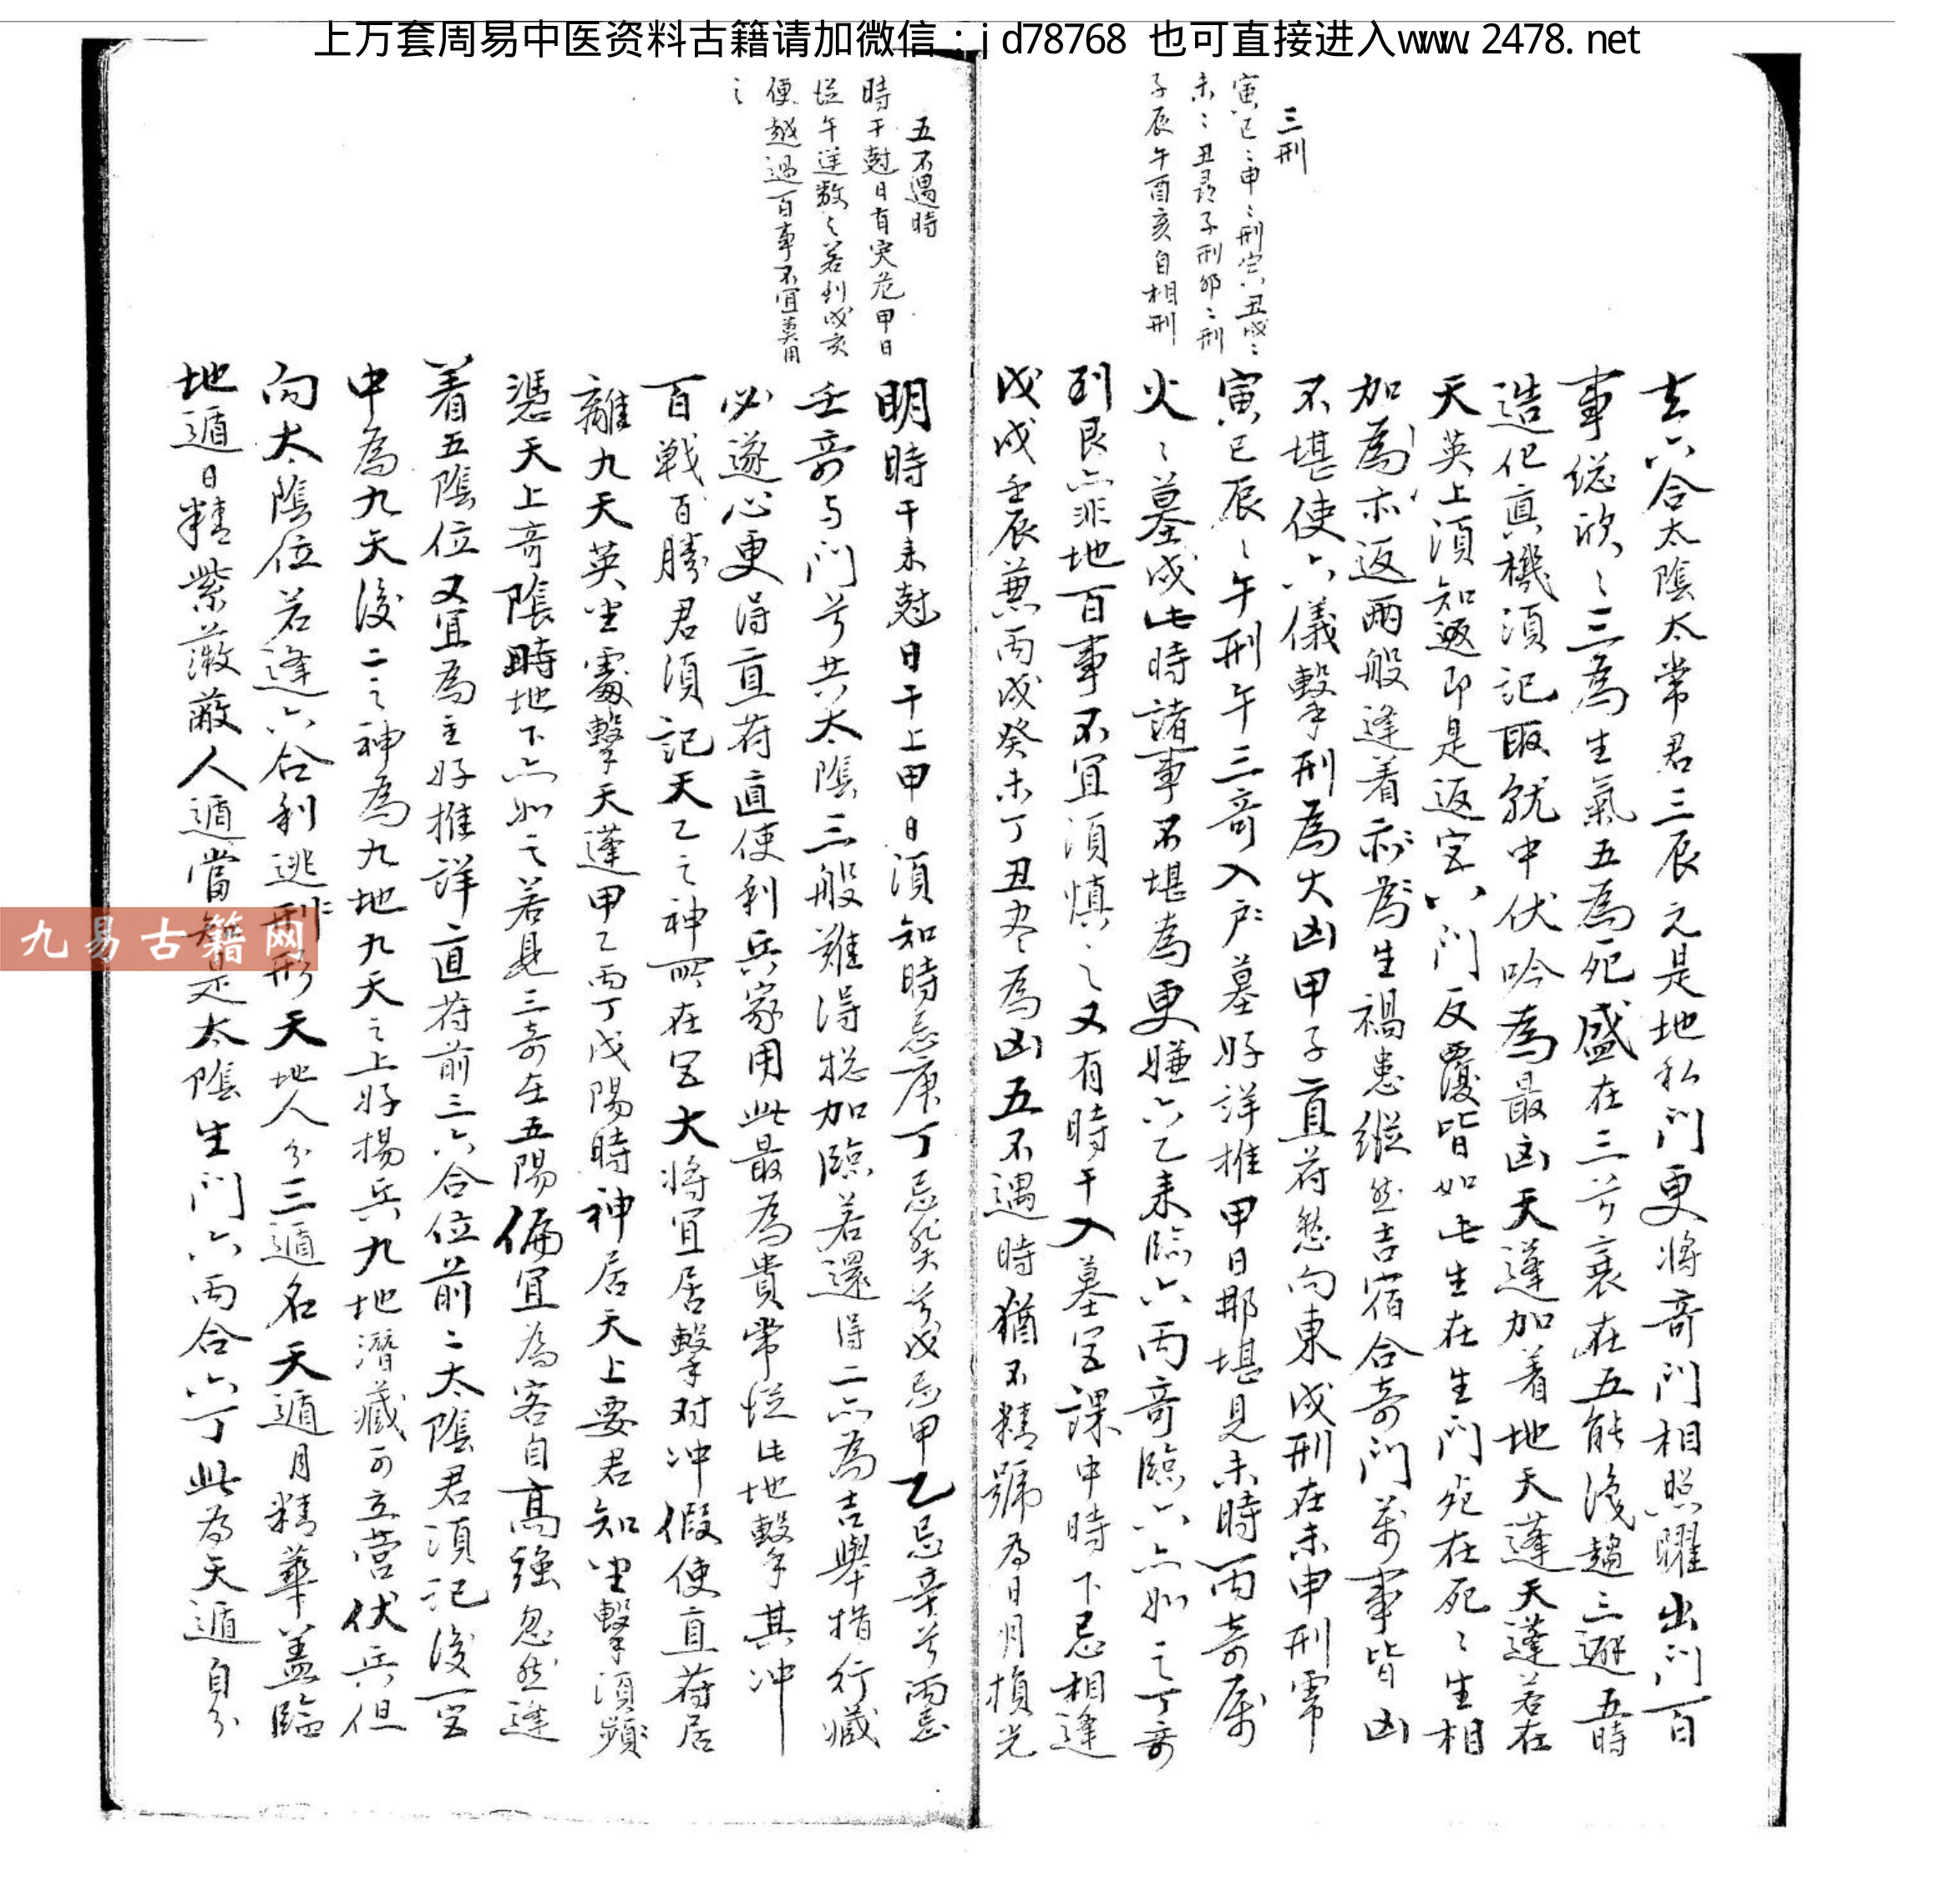 上万套周易中医资料古籍请加微信：jd78768 也可直接进入www.2478.net
三刑
寅巳〻申〻刑寅丑戌〻
未〻丑是子刑卯〻刑
子辰午酉亥自相刑
去六合太陰太常君三辰元是地私門更將奇門相照曜出門百
事総欣〻三為生氣五為死盛在三兮衰在五能識趨三避五時
造化真機須記取就中伏吟為最凶天蓬加着地天蓬天蓬若在
天英上須知返即是返宮八門反覆皆如此生在生門死在死〻生相
加為亦返兩般逢着亦為生禍患縱然吉宿合奇門萬事皆凶
不堪使六儀擊刑為大凶甲子直符愁向東戌刑在未申刑寅
寅巳辰〻午刑午三奇入戶墓好詳推甲日那堪見未時丙奇属
火〻墓戌此時諸事不堪為更嫌六乙来臨六丙奇臨六亦如之丁奇
到艮亦非地百事不宜須慎之又有時干入墓宮課中時下忌相逢
戊戌壬辰兼丙戌癸未丁丑亦為凶五不遇時猶不精號為日月損光
五不遇時
時干尅日有灾危甲日
從午逆数之若到戌亥
便越過百事不宜莫用
之
明時干来尅日干上甲日須知時忌庚丁忌癸兮戊忌甲乙忌辛兮丙忌
壬奇与門兮共太陰三般難得総加臨若還得二亦為吉舉措行藏
必遂心更得直符直使利兵家用此最為貴常從此地擊其冲
百戰百勝君須記天乙之神所在宮大將宜居擊对冲假使直符居
離九天英坐處擊天蓬甲乙丙丁戊陽時神居天上要君知坐擊須
憑天上奇陰時地下亦如之若見三奇在五陽偏宜為客自高強忽然逢
着五陰位又宜為主好推詳直符前三六合位前二太陰君須記後一宮
中為九天後二之神為九地九天之上好揚兵九地潛藏可立营伏兵但
向太陰位若逢六合利逃形天地人分三遁名天遁月精華盖臨
地遁日精紫薇蔽人遁當知是太陰生門六丙合六丁此為天遁自分
九易古籍网